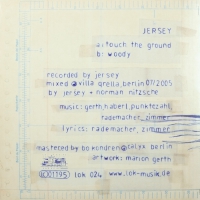 JERSEY
a: touch the ground
b: woody
recorded by jersey
mixed @ villa qrella, berlin 07/2005
by jersey + norman nitzsche
music: gerth, haberl, punktezahl,
rademacher, zimmer
lyrics: rademacher, zimmer
mastered by bo kondren @ calyx berlin
artwork: marion gerth
LC01195 lok 024 www.lok-musik.de